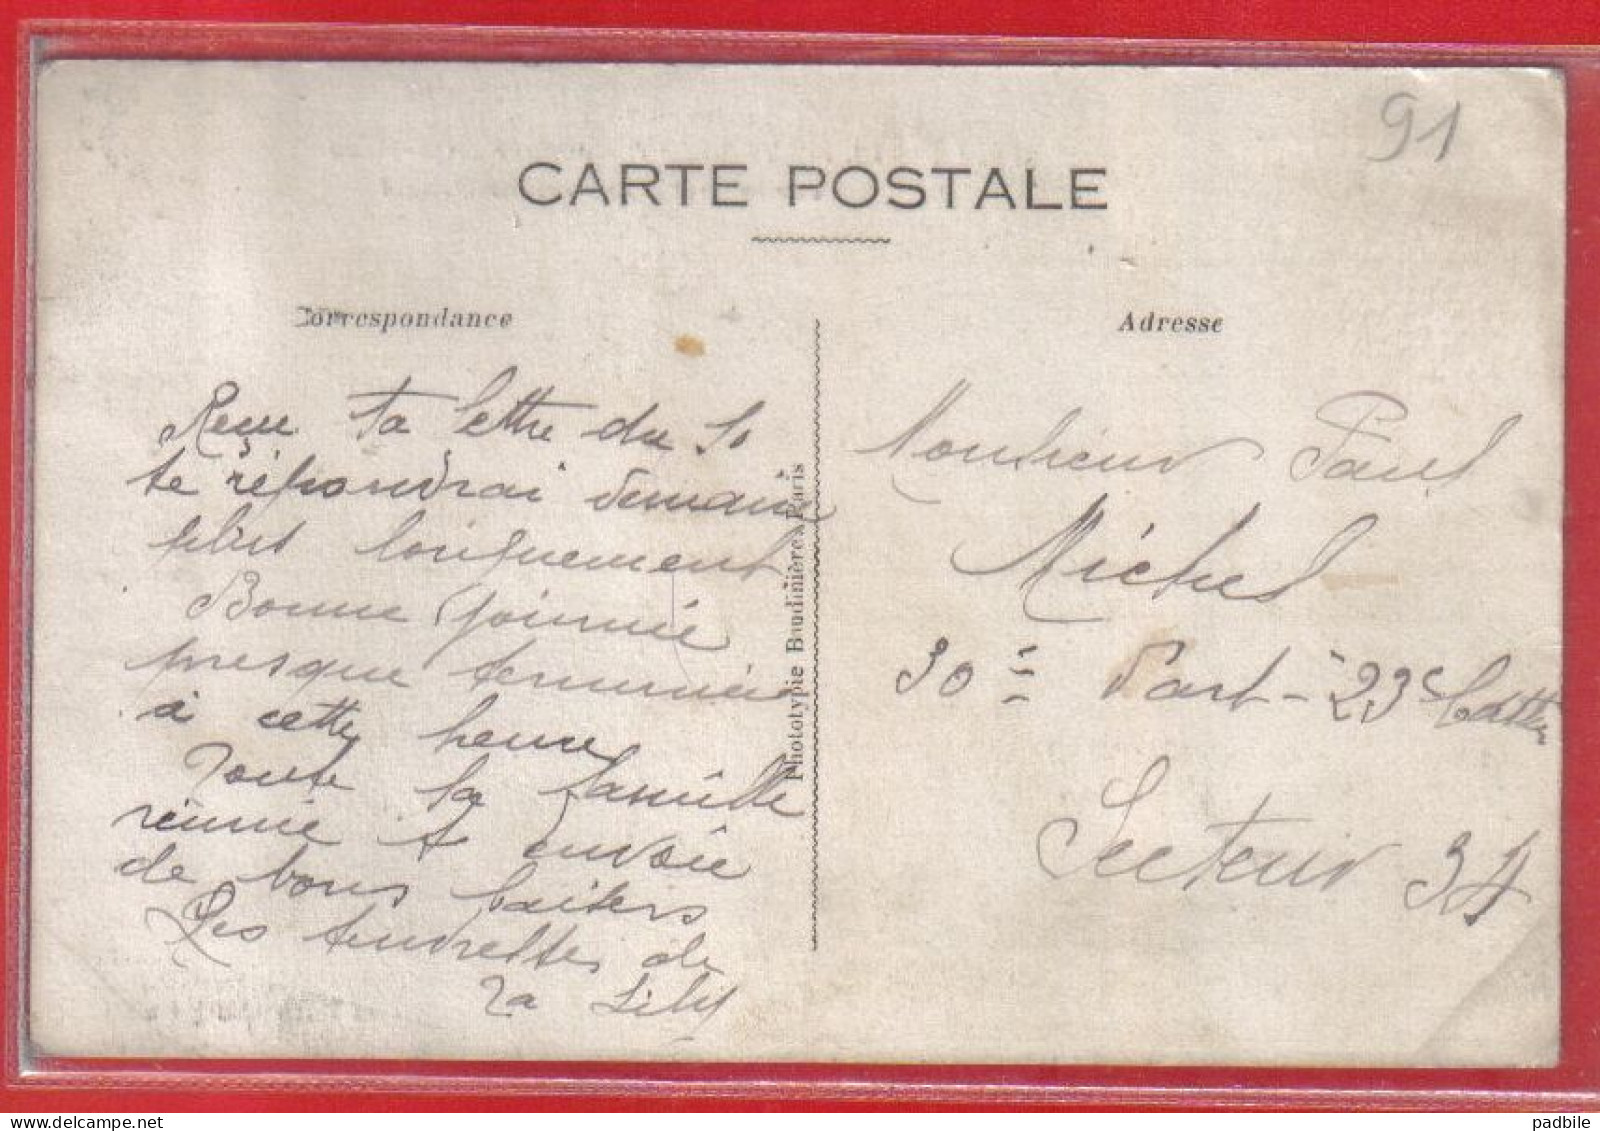 91
CARTE POSTALE
Correspondance
Adresse
Reçu ta lettre du 10
te répondrai demain
plus longuement
Bonne journée
presque terminée
à cette heure
Toute la famille
réunie t'envoie
de bons baisers
Les tendresses de
ta Lily
Phototypie Baudinière, Paris
Monsieur Paul
Michel
30e 23e Batterie
Secteur 34
padbile